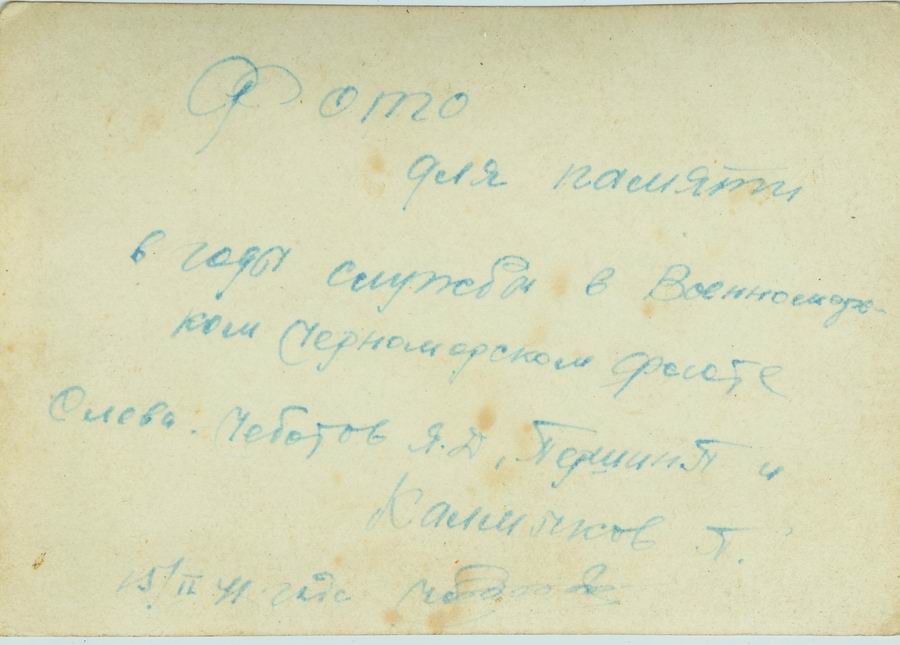 Фото
для памяти
в годы службы в Военноморс-
ком Черноморском флоте
Слева. Чеботов Я.Д, Першин П и
Калмыков П.
15/II 41 года